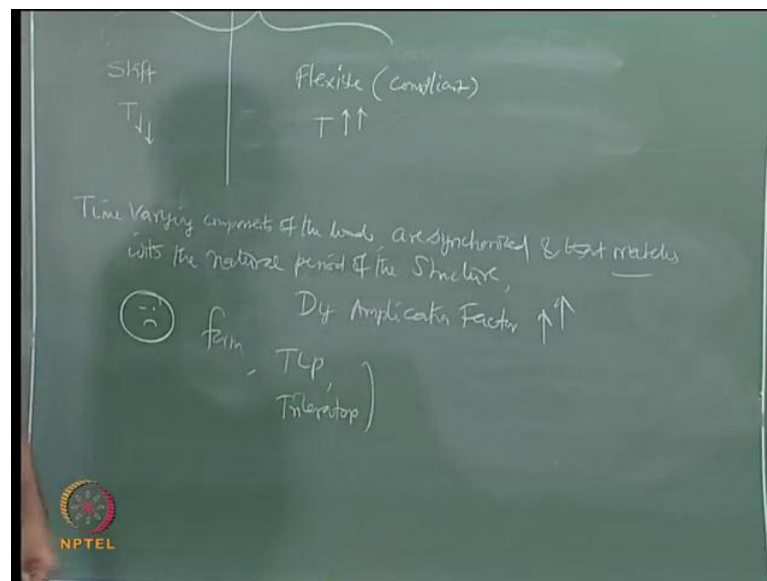 Stiff Flexible (Compliant)
T↓↓ T↑↑
Time Varying components of the loads, are synchronized & matches
with the natural period of the Structure,
Dy Amplicatin Factor ↑↑
form, TLP,
Triceratop
NPTEL